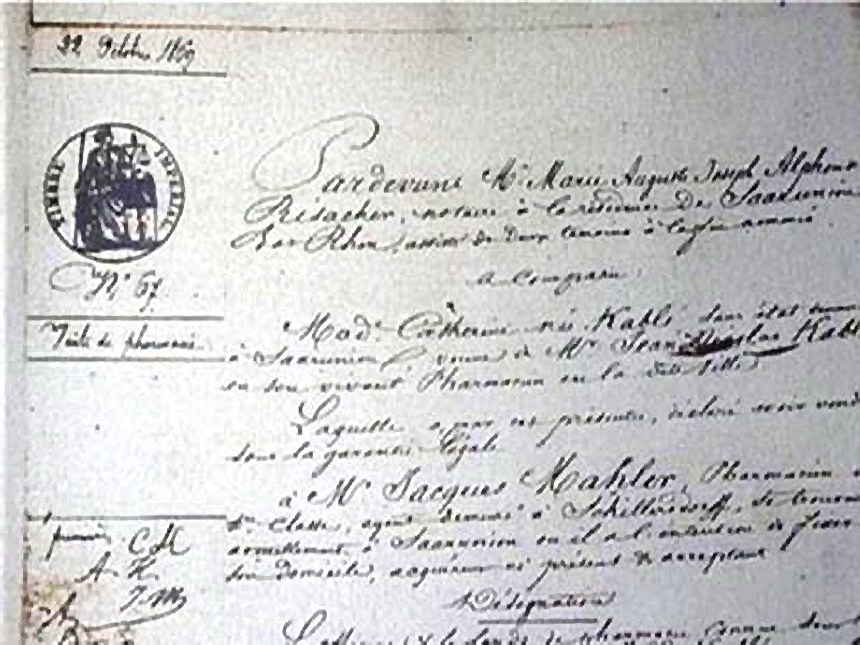 22 Octobre 1869
TIMBRE IMPERIAL
N° 67
Vente de pharmacie
Pardevant Me Marie Auguste Joseph Alphonse
Risacher, notaire à la résidence de Saarunion
Bas Rhin, assisté de deux témoins à la fin nommés
a comparu
Mad. Catherine née Kablé sans état
à Saarunion, veuve de Mr Jean Nicolas Kablé
en son vivant Pharmacien en la dite ville
Laquelle a, par ces présentes, déclaré avoir vendu
sous la garantie légale
à Mr Jacques Mahler, Pharmacien
classe, ayant demeuré à Schillersdorff, se trouvant
actuellement à Saarunion où il a l'intention de fixer
son domicile, acquéreur ici présent & acceptant
Désignation
C M
A. K.
J. M
de pharmacie